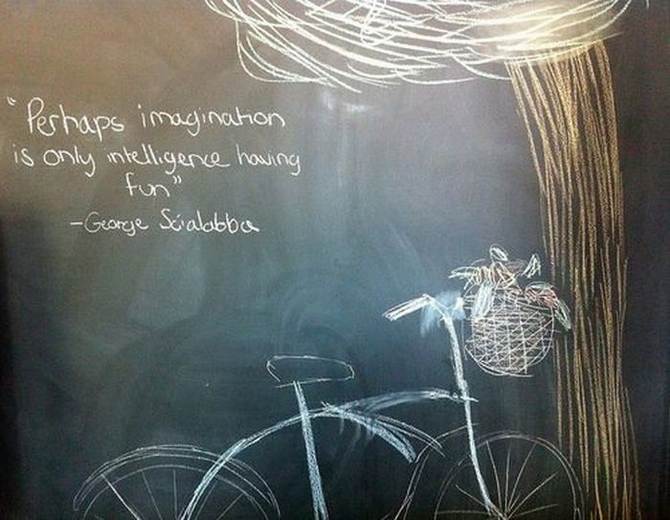 "Perhaps imagination
is only intelligence having
fun"
-George Scialabba